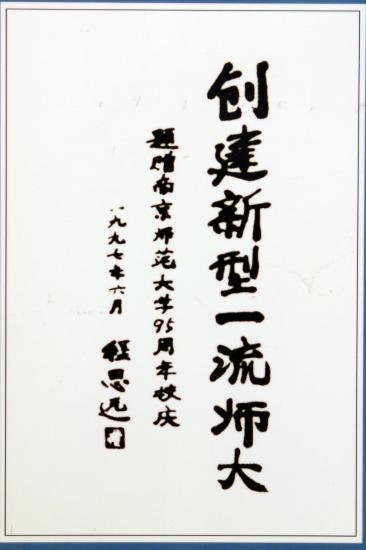 创建新型一流师大
题赠南京师范大学95周年校庆
一九九七年六月
程思远